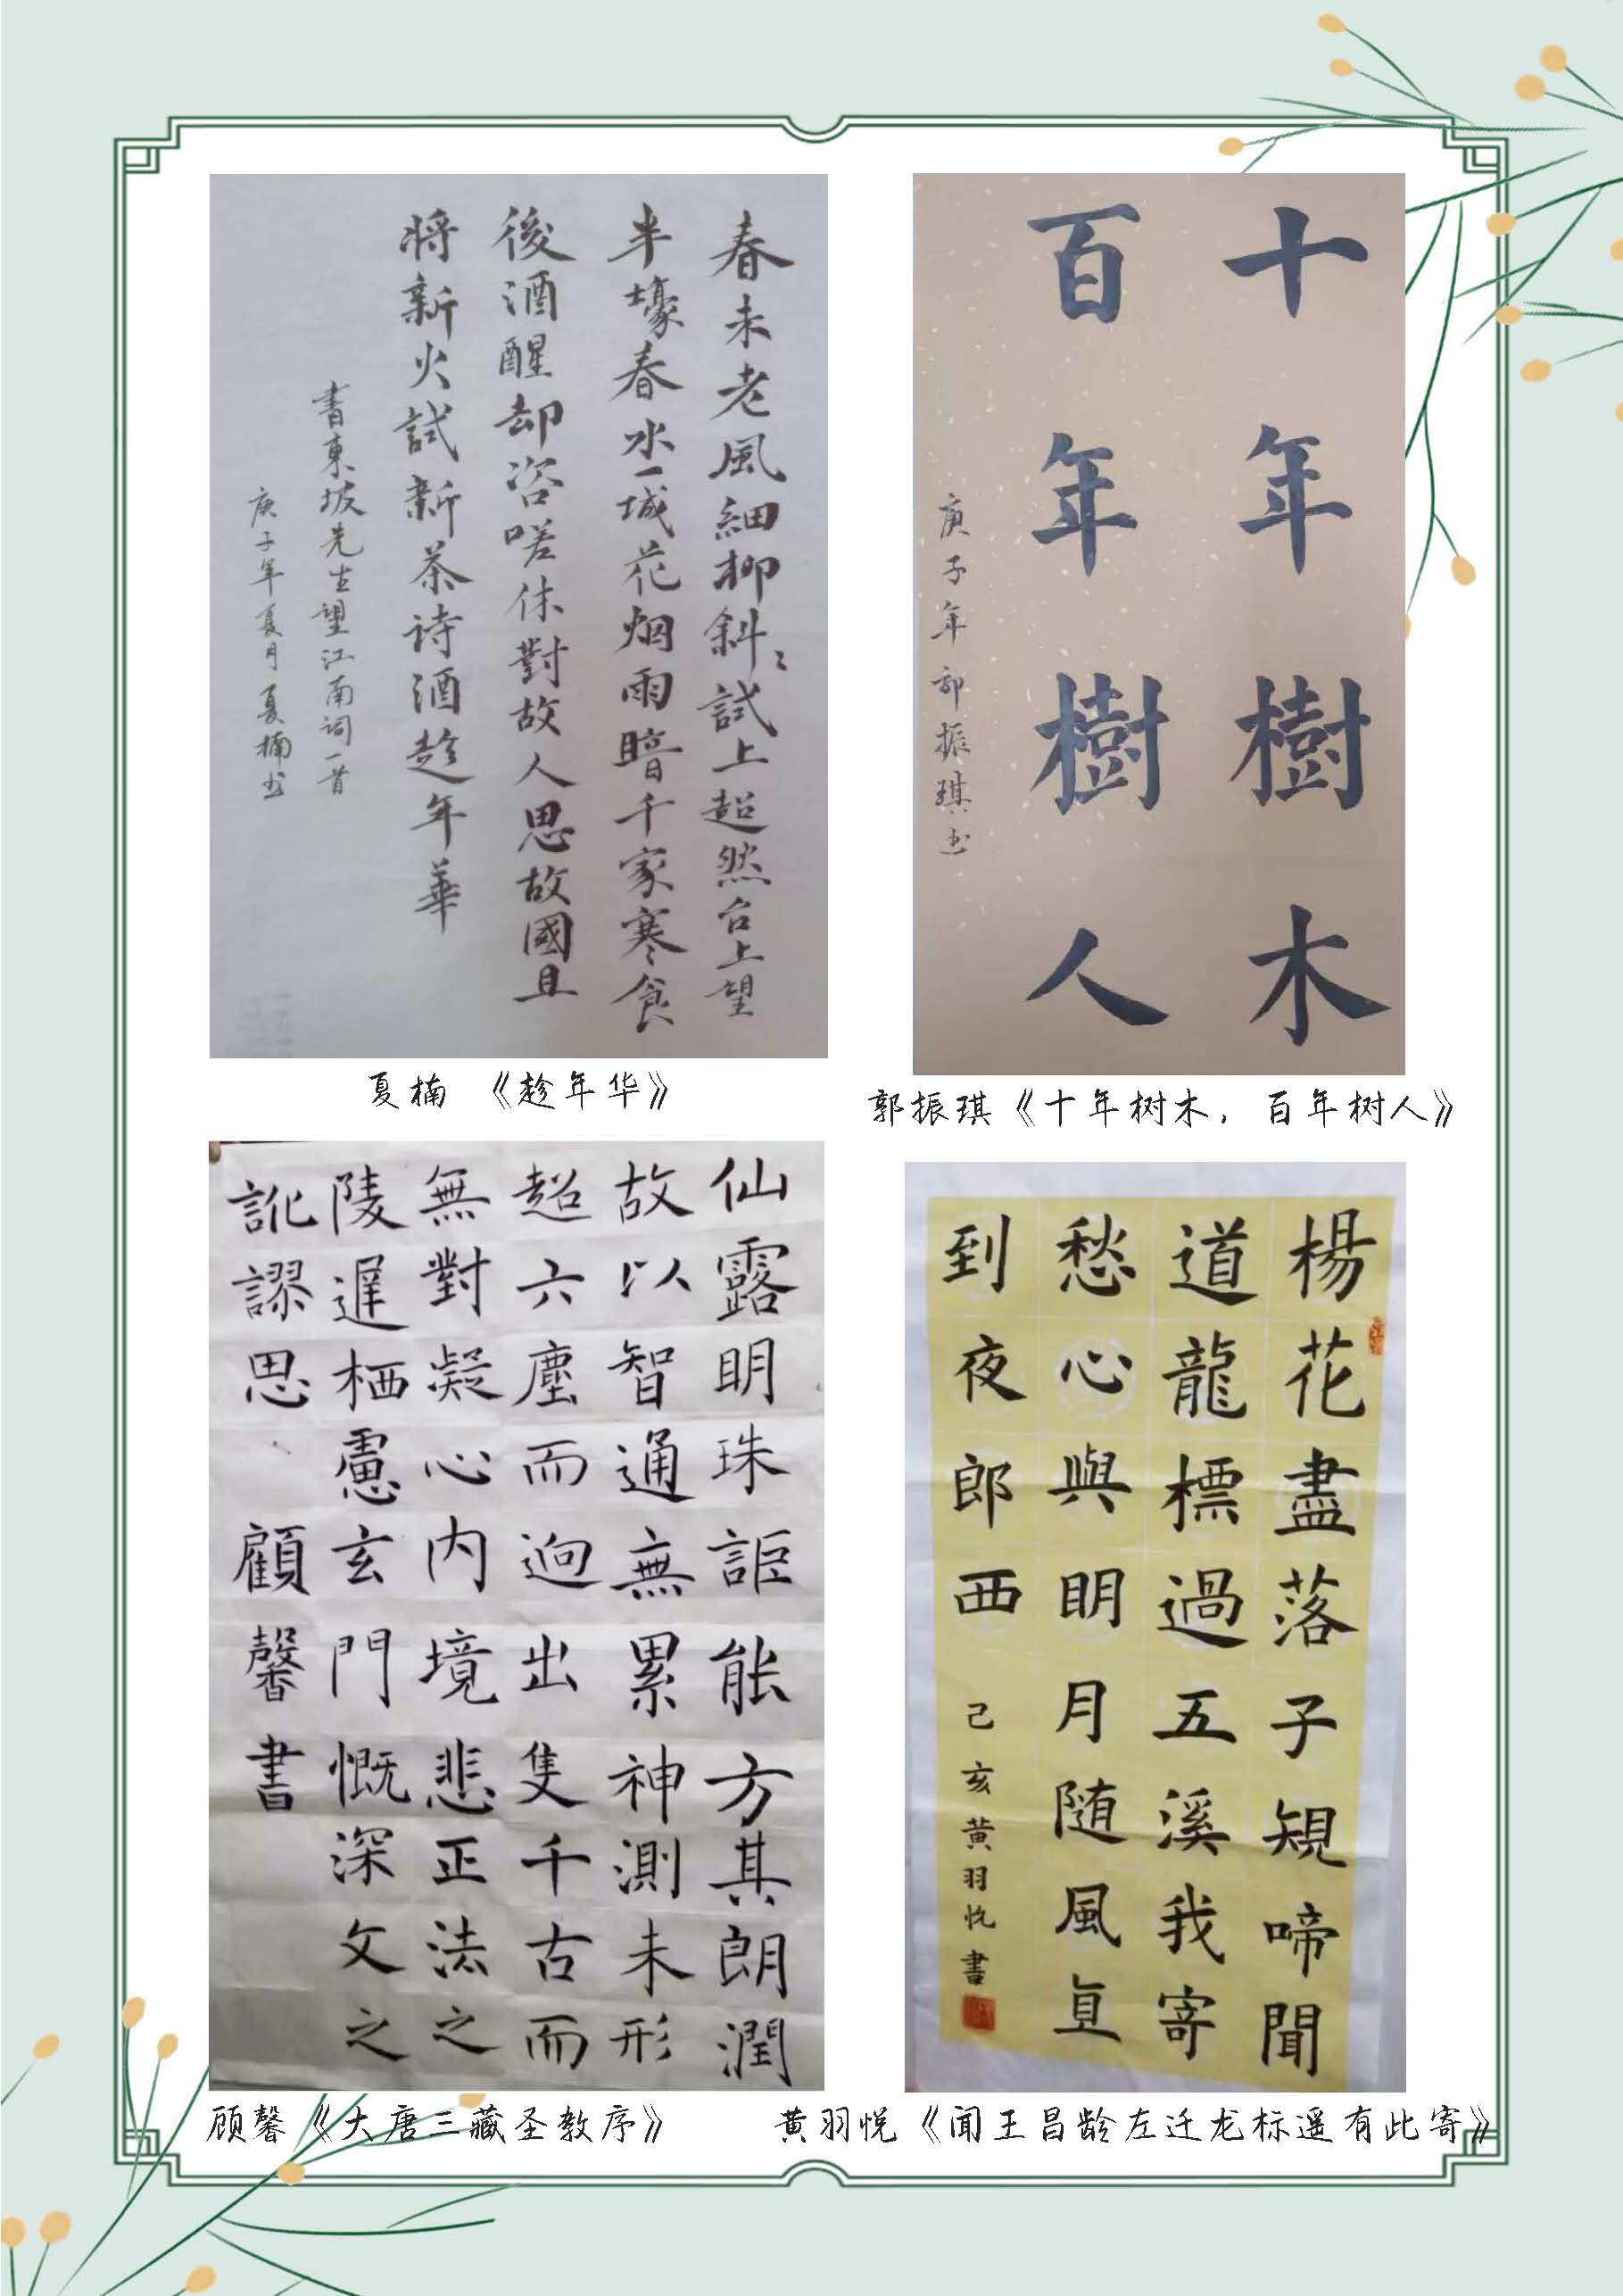 春未老風細柳斜〻試上超然台上望
半壕春水一城花烟雨暗千家寒食
後酒醒却咨嗟休對故人思故國且
将新火試新茶诗酒趁年華
書東坡先生望江南词一首
庚子年夏月夏楠书
夏楠 《趁年华》
十年樹木
百年樹人
庚子年郭振琪书
郭振琪《十年树木，百年树人》
仙露明珠詎能方其朗潤
故以智通無累神測未形
超六塵而迥出隻千古而
無對凝心内境悲正法之
陵遲栖慮玄門慨深文之
訛謬思 顧馨書
顾馨《大唐三藏圣教序》
楊花盡落子規啼聞
道龍標過五溪我寄
愁心與明月随風直
到夜郎西
己亥黄羽悦書
黄羽悦《闻王昌龄左迁龙标遥有此寄》